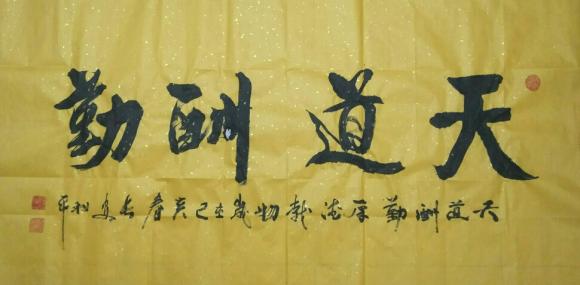 天道酬勤
天道酬勤厚德载物岁在己亥春